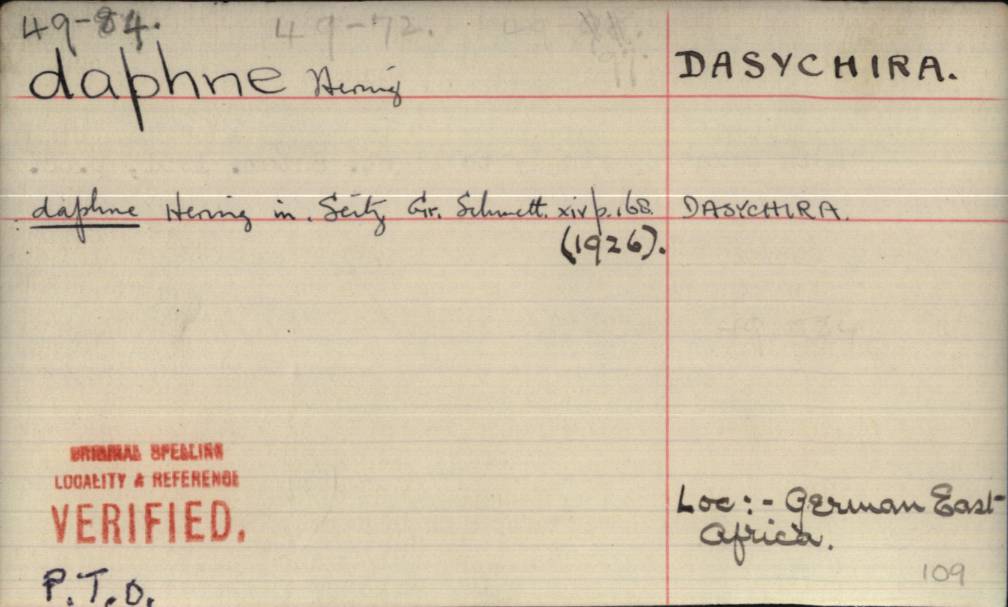 49-84. 49-72.
daphne Hering DASYCHIRA.
daphne Hering in. Seitz Gr. Schmett. xiv p. 168. DASYCHIRA.
(1926).
ORIGINAL SPELLING
LOCALITY & REFERENCE
VERIFIED.
Loc:- German East-
Africa.
P.T.O.
109